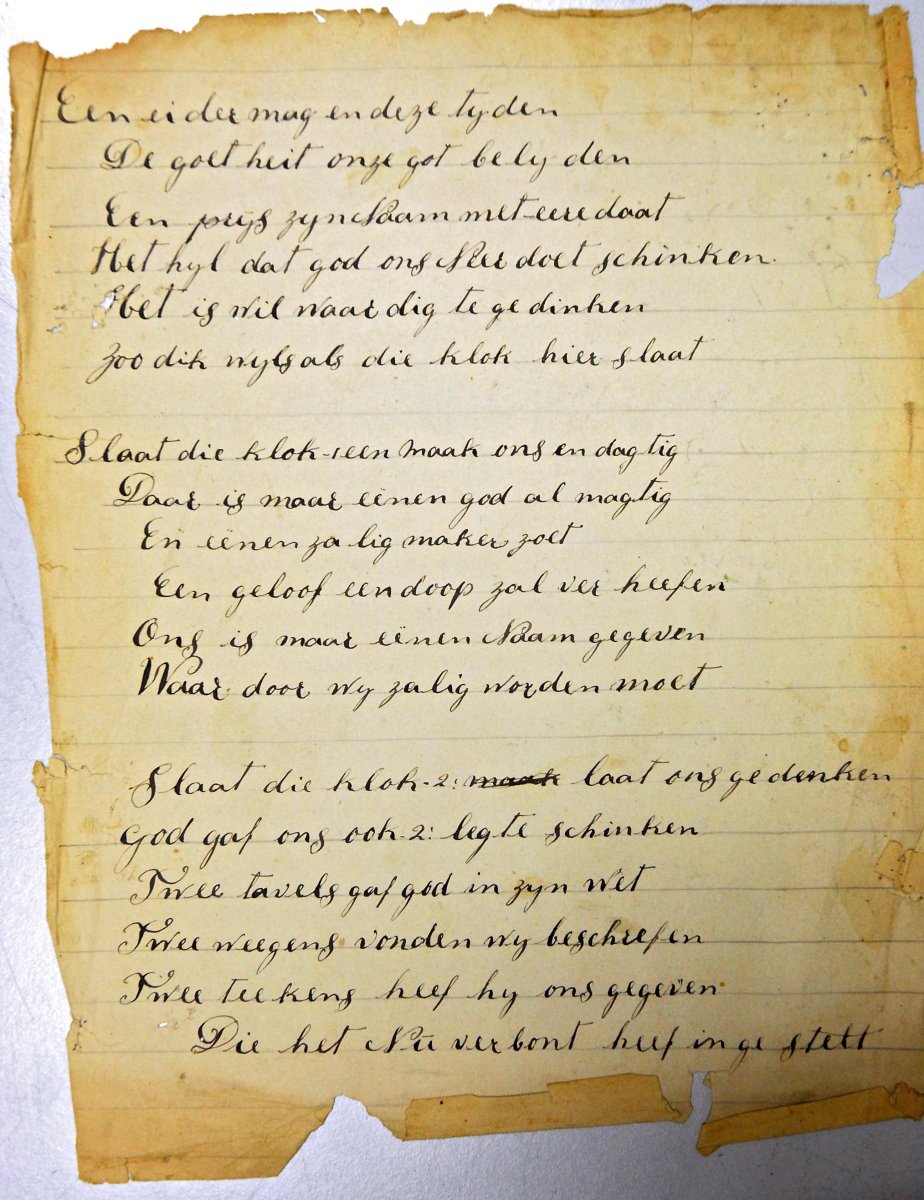 Een eider mag en deze tyden
De goet heit onze got bely den
Een prijs zyn Naam met eere daat
Het hyl dat god ons Neer doet schinken.
Het is wil waardig te gedinken
Zoo dik wyls als die klok hier slaat
Slaat die klok-1 een maak ons en dagtig
Daar is maar eënen god al magtig
En eënen za lig maker zoet
Een geloof een doop zal ver heefen
Ons is maar eënen Naam gegeven
Waar door wy zalig worden moet
Slaat die klok-2: maak laat ons gedenken
God gaf ons ook 2: legte schinken
Twee tavels gaf god in zyn wet
Twee weegens vonden wy beschrefen
Twee teekens heef hy ons gegeven
Die het Nu verbont heef in ge stett